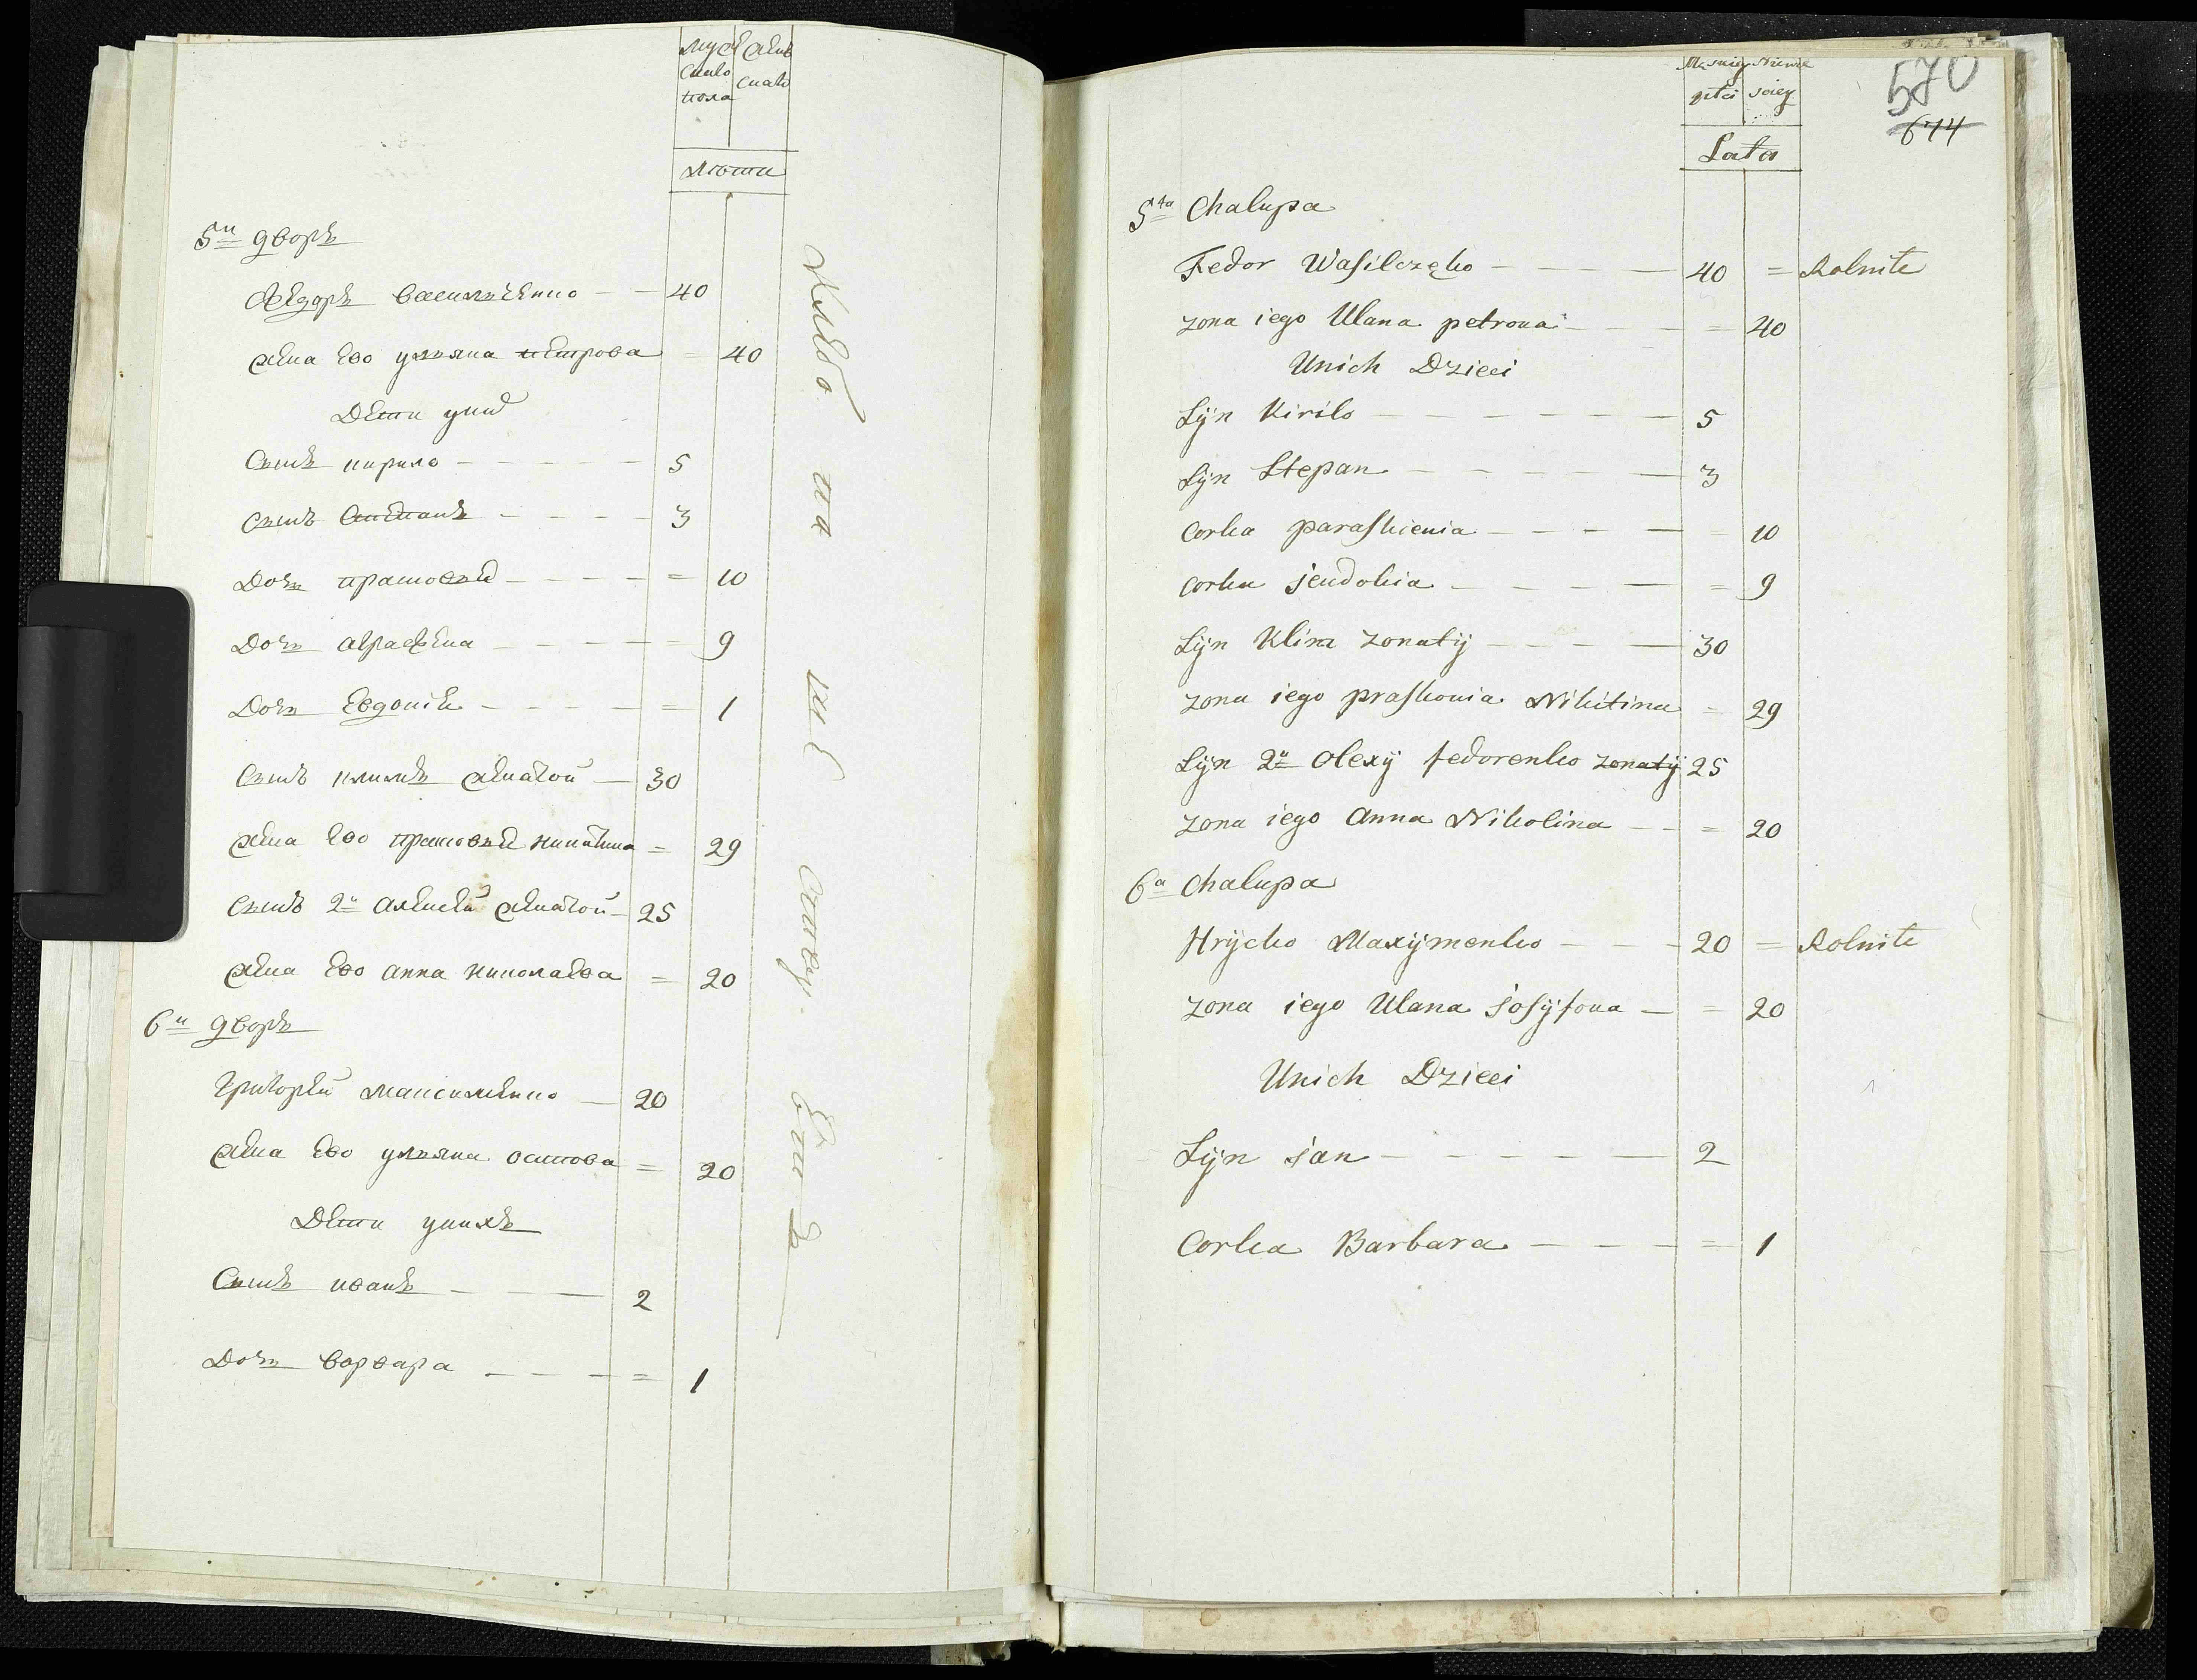 муж женс
скаго скаго
пола
лѣты
5й дворъ
Федоръ василченко 40
жена ево ульяна петрова = 40
Дети уних
Сынъ кирило 5
Сынъ Степанъ 3
Дочь прасковя = 10
Дочь аграфена = 9
Дочь Евдокия = 1
Сынъ климъ женатои 30
жена ево прасковя никитина = 29
Сынъ 2й алексеи женатои 25
жена ево анна николаева = 20
6й дворъ
григореи максименко 20
жена ево ульяна осипова = 20
Дети унихъ
Сынъ иванъ 2
Дочь варвара = 1
570
674
Męskiey Niewie
płci sciey
Lata
5ta Chalupa
Fedor Wasilczęko 40 = Rolnik
zona iego Ulana petrowa = 40
Unich Dzieci
Syn Kirilo 5
Syn Stepan 3
Corka paraskiewia = 10
corka jeudokia = 9
Syn Klim zonaty 30
zona iego praskowia Nikitina = 29
Syn 2й Olexy fedorenko zonaty 25
zona iego Anna Nikolina = 20
6a Chalupa
Hrycko Maxymenko 20 = Rolnik
zona iego Ulana josyfowa = 20
Unich Dzieci
Syn jan 2
Corka Barbara = 1